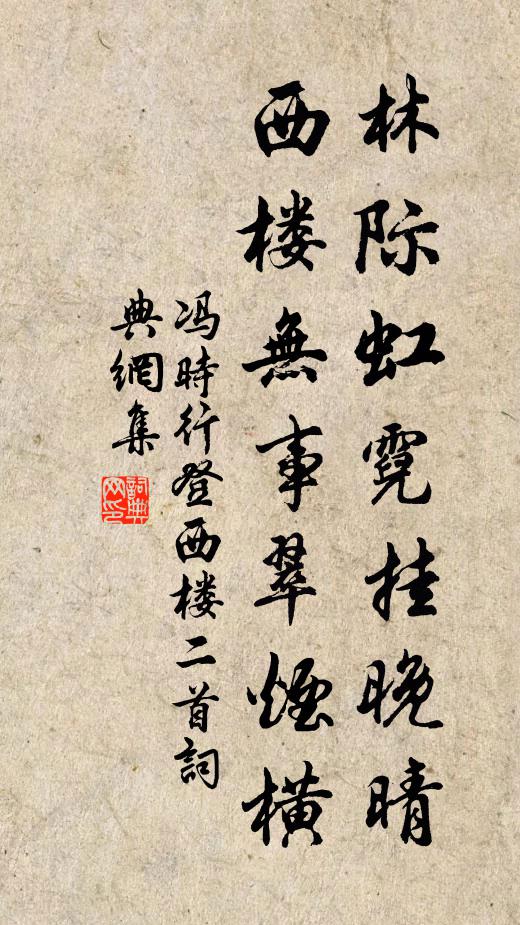 林际虹霓挂晚晴
西楼無事翠煙横
冯時行登西楼二首詞
典網集
詞典
网印